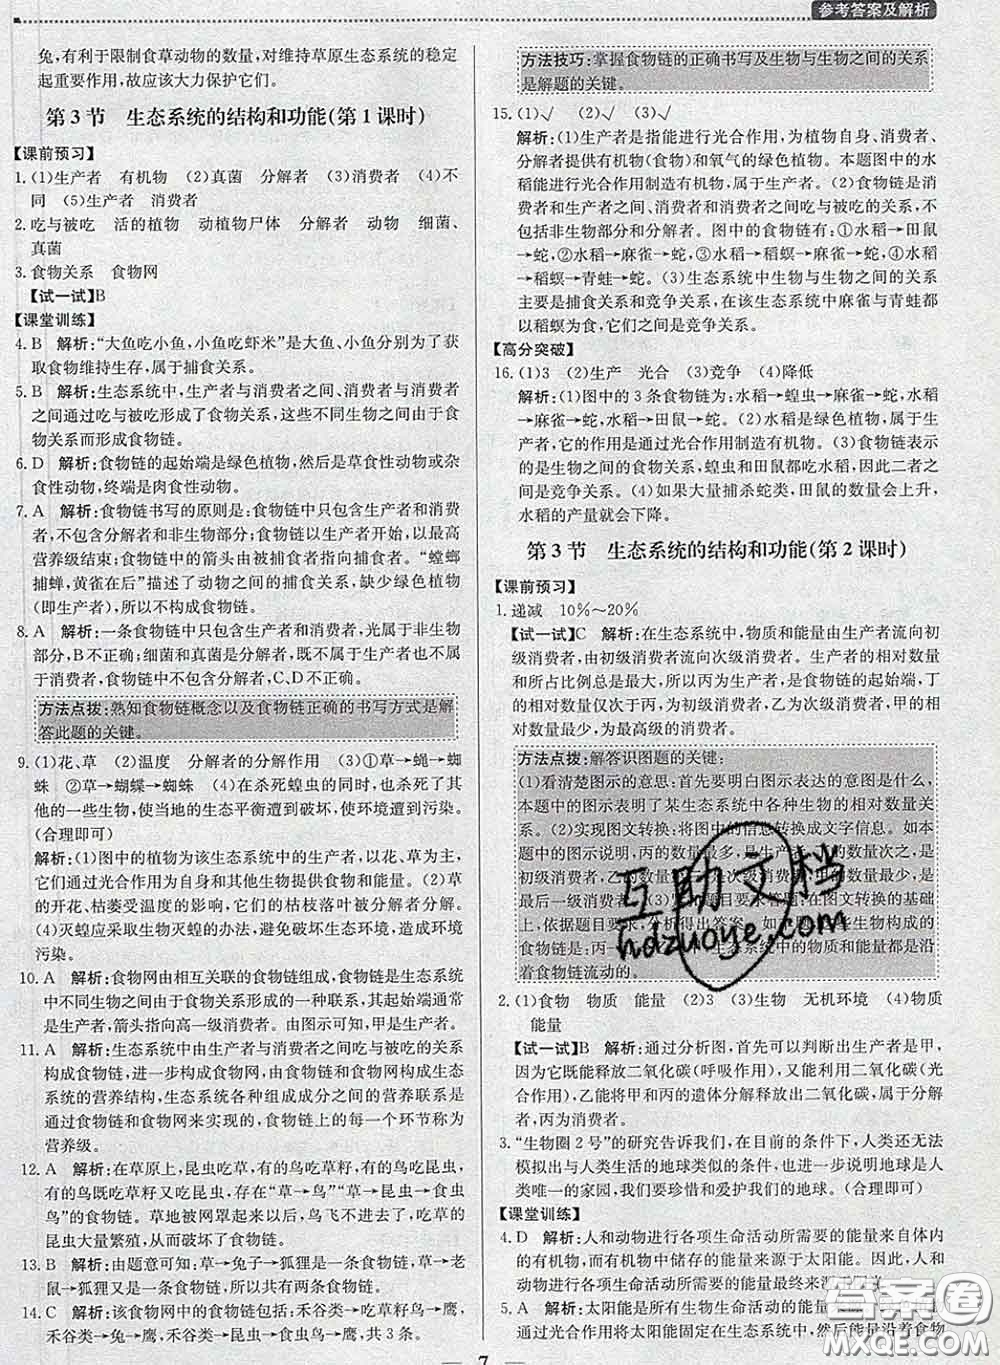 参考答案及解析
兔,有利于限制食草动物的数量,对维持草原生态系统的稳定
起重要作用,故应该大力保护它们。
第3节 生态系统的结构和功能(第1课时)
【课前预习】
1. (1)生产者 有机物 (2)真菌 分解者 (3)消费者 (4)不
同 (5)生产者 消费者
2. 吃与被吃 活的植物 动植物尸体 分解者 动物 细菌、
真菌
3. 食物关系 食物网
【试一试】B
【课堂训练】
4. B 解析:“大鱼吃小鱼,小鱼吃虾米”是大鱼、小鱼分别为了获
取食物维持生存,属于捕食关系。
5. B 解析:生态系统中,生产者与消费者之间、消费者与消费者
之间通过吃与被吃形成了食物关系,这些不同生物之间由于食
物关系而形成食物链。
6. D 解析:食物链的起始端是绿色植物,然后是草食性动物或杂
食性动物,终端是肉食性动物。
7. A 解析:食物链书写的原则是:食物链中只包含生产者和消费
者,不包含分解者和非生物部分;食物链以生产者开始,以最高
营养级结束;食物链中的箭头由被捕食者指向捕食者。“螳螂
捕蝉,黄雀在后”描述了动物之间的捕食关系,缺少绿色植物
(即生产者),所以不构成食物链。
8. A 解析:一条食物链中只包含生产者和消费者,光属于非生物
部分,B不正确;细菌和真菌是分解者,既不属于生产者也不属
于消费者,食物链中不包含分解者,C、D不正确。
方法点拨:熟知食物链概念以及食物链正确的书写方式是解
答此题的关键。
9. (1)花、草 (2)温度 分解者的分解作用 (3)①草→蝇→蜘
蛛 ②草→蝴蝶→蜘蛛 (4)在杀死蝗虫的同时,也杀死了其
他的一些生物,使当地的生态平衡遭到破坏,使环境遭到污染。
(合理即可)
解析:(1)图中的植物为该生态系统中的生产者,以花、草为主,
它们通过光合作用为自身和其他生物提供食物和能量。(2)草
的开花、枯萎受温度的影响,它们的枯枝落叶被分解者分解。
(4)灭蝗应采取生物灭蝗的办法,避免破坏生态环境,造成环境
污染。
10. A 解析:食物网由相互关联的食物链组成,食物链是生态系统
中不同生物之间由于食物关系形成的一种联系,其起始端通常
是生产者,箭头指向高一级消费者。由图示可知,甲是生产者。
11. A 解析:生态系统中由生产者与消费者之间吃与被吃的关系
构成食物链,进一步构成食物网,食物链和食物网构成生态
系统的营养结构,生态系统各种组成成分之间的营养联系是
通过食物链和食物网来实现的,食物链上每一个环节称为
营养级。
12. A 解析:在草原上,昆虫吃草,有的鸟吃草籽,有的鸟吃昆虫,
有的鸟既吃草籽又吃昆虫,存在“草→鸟”“草→昆虫→食虫
鸟”的食物链。草地被网罩起来以后,食虫鸟飞不进去,吃草的
昆虫大量繁殖,从而破坏了食物链。
13. B 解析:由题意可知:草→兔子→狐狸是一条食物链,草→老
鼠→狐狸又是一条食物链,所以共有两条食物链。
14. C 解析:该食物网中的食物链包括:禾谷类→吃草籽鸟→鹰,
禾谷类→兔→鹰,禾谷类→鼠→鹰,共3条。
方法技巧:掌握食物链的正确书写及生物与生物之间的关系
是解题的关键。
15. (1)√ (2)√ (3)√
解析:(1)生产者是指能进行光合作用,为植物自身、消费者、
分解者提供有机物(食物)和氧气的绿色植物。本题图中的水
稻能进行光合作用制造有机物,属于生产者。(2)食物链反映
的是生产者与消费者之间、消费者和消费者之间吃与被吃的关系,不
包括非生物部分和分解者。图中的食物链有:①水稻→田鼠
→蛇,②水稻→麻雀→蛇,③水稻→稻螟→麻雀→蛇,④水稻
→稻螟→青蛙→蛇。(3)生态系统中生物与生物之间的关系
主要是捕食关系和竞争关系,在该生态系统中麻雀与青蛙都
以稻螟为食,它们之间是竞争关系。
【高分突破】
16. (1)3 (2)生产 光合 (3)竞争 (4)降低
解析:(1)图中的3条食物链为:水稻→蝗虫→麻雀→蛇,水稻
→麻雀→蛇,水稻→田鼠→蛇。(2)水稻是绿色植物,属于生
产者,它的作用是通过光合作用制造有机物。(3)食物链表示
的是生物之间的食物关系,蝗虫和田鼠都吃水稻,因此二者之
间是竞争关系。(4)如果大量捕杀蛇类,田鼠的数量会上升,
水稻的产量就会下降。
第3节 生态系统的结构和功能(第2课时)
【课前预习】
1. 递减 10%～20%
【试一试】C 解析:在生态系统中,物质和能量由生产者流向初
级消费者,由初级消费者流向次级消费者。生产者的相对数量
和所占比例总是最大,所以丙为生产者,是食物链的起始端,丁
的相对数量仅次于丙,为初级消费者,乙为次级消费者,甲的相
对数量最少,为最高级的消费者。
方法点拨:解答识图题的关键:
(1)看清楚图示的意思:首先要明白图示表达的意图是什么,
本题中的图示表明了某生态系统中各种生物的相对数量关
系。(2)实现图文转换:将图中的信息转换成文字信息。如本
题中的图示说明,丙的数量最多,是生产者,丁的数量次之,是初
级消费者,乙是次级消费者,甲的数量最少,是
最后一级消费者。(3)分析题目要求答题:在图文转换的基础
上,依据题目要求,分析得出答案。如本题中生物构成的
食物链是:丙→生态系统中的物质和能量都是沿
着食物链流动的。
2. (1)食物 物质 能量 (2)3 (3)生物 无机环境 (4)物质
能量
【试一试】B 解析:通过分析图,首先可以判断出生产者是甲,
因为它既能释放二氧化碳(呼吸作用),又能利用二氧化碳(光
合作用),乙能将甲和丙的遗体分解释放出二氧化碳,属于分解
者,丙为消费者。
3. “生物圈2号”的研究告诉我们,在目前的条件下,人类还无法
模拟出与人类生活的地球类似的条件,也进一步说明地球是
人类唯一的家园,我们要珍惜和爱护我们的地球。(合理即可)
【课堂训练】
4. D 解析:人和动物进行各项生命活动所需要的能量来自体内
的有机物,而有机物中储存的能量来源于太阳能。因此,人和
动物进行各项生命活动所需要的能量最终来源
5. A 解析:太阳能是所有生物生命活动的能量
通过光合作用将太阳能固定在生态系统中,然后能量沿着食物
互助文档
hdzuoye.com
答案圈
MXQE.COM
7